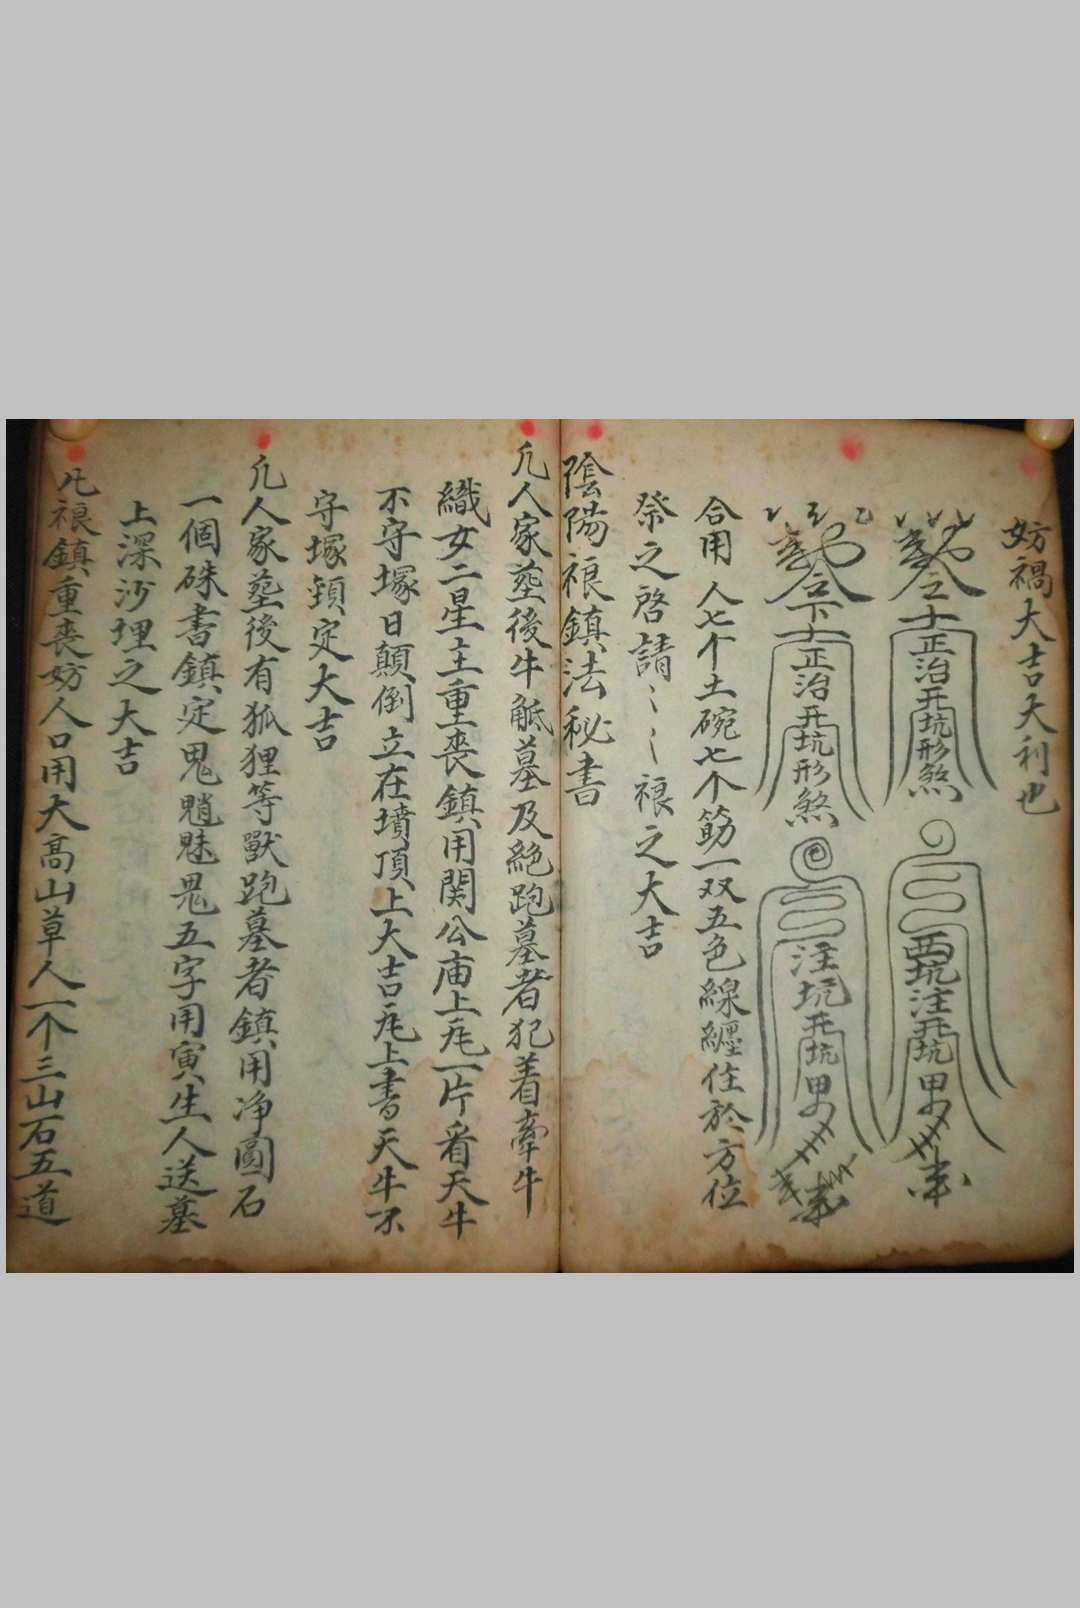 妨禍大吉大利也
敕令
士正治开坑形煞
西坑注开坑男
敕令
下士正治开坑形煞
注坑开坑男
合用 人七个土碗七个筯一双五色線纏住於方位
祭之啓請〻〻禳之大吉
陰陽禳鎮法秘書
凢人家塟後牛觝墓及絕跑墓者犯着牽牛
織女二星主重喪鎮用関公庙上瓦一片看天牛
不守塚日顛倒立在墳頂上大吉瓦上書天牛不
守塚鎮定大吉
凢人家塟後有狐狸等獸跑墓者鎮用净圓石
一個硃書鎮定鬼魈魅鬽五字用寅生人送墓
上深沙埋之大吉
凢禳鎮重喪妨人口用大高山草人一个三山石五道